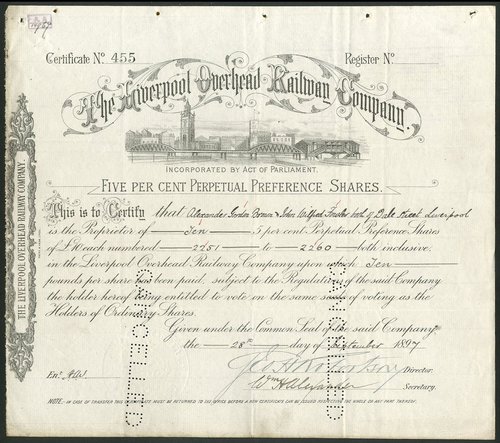 Certificate No. 455
Register No.
The Liverpool Overhead Railway Company.
INCORPORATED BY ACT OF PARLIAMENT.
FIVE PER CENT PERPETUAL PREFERENCE SHARES.
THE LIVERPOOL OVERHEAD RAILWAY COMPANY.
This is to Certify that Alexander Gordon & John both of Dale Street Liverpool
is the Proprietor of Ten 5 per cent Perpetual Preference Shares
of £10 each numbered 2251 to 2260 both inclusive,
in the Liverpool Overhead Railway Company upon which Ten
pounds per share has been paid, subject to the Regulations of the said Company
the holder hereof being entitled to vote on the same scale of voting as the
Holders of Ordinary Shares.
Given under the Common Seal of the said Company,
the 28th day of September 1897
Director.
Wm Alexander Secretary.
Ent.
NOTE:- IN CASE OF TRANSFER THIS CERTIFICATE MUST BE RETURNED TO THE OFFICE BEFORE A NEW CERTIFICATE CAN BE ISSUED RESPECTING THE WHOLE OR ANY PART THEREOF.
CANCELLED
CANCELLED